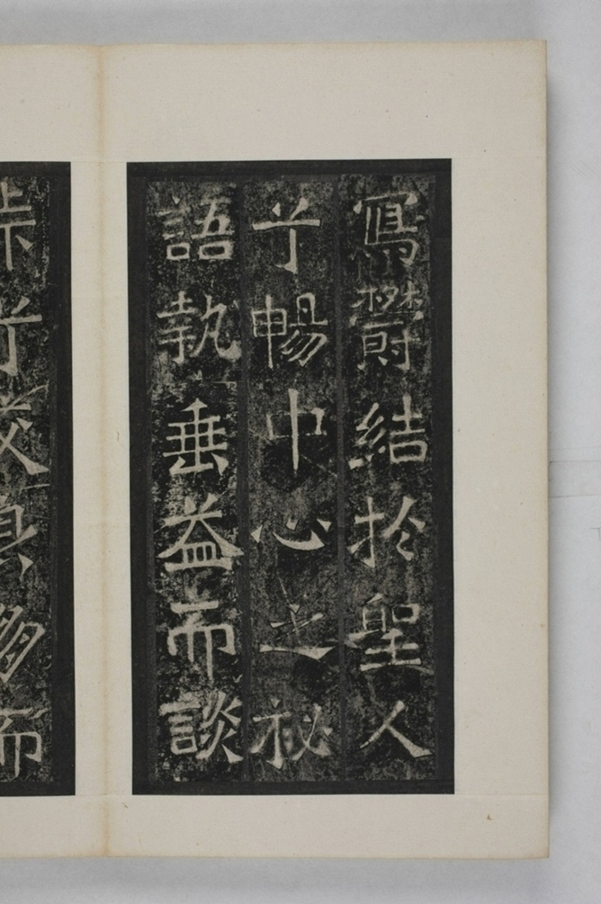 寫鬱結於聖人
兮暢中心之祕
語執垂益而談
兮 而